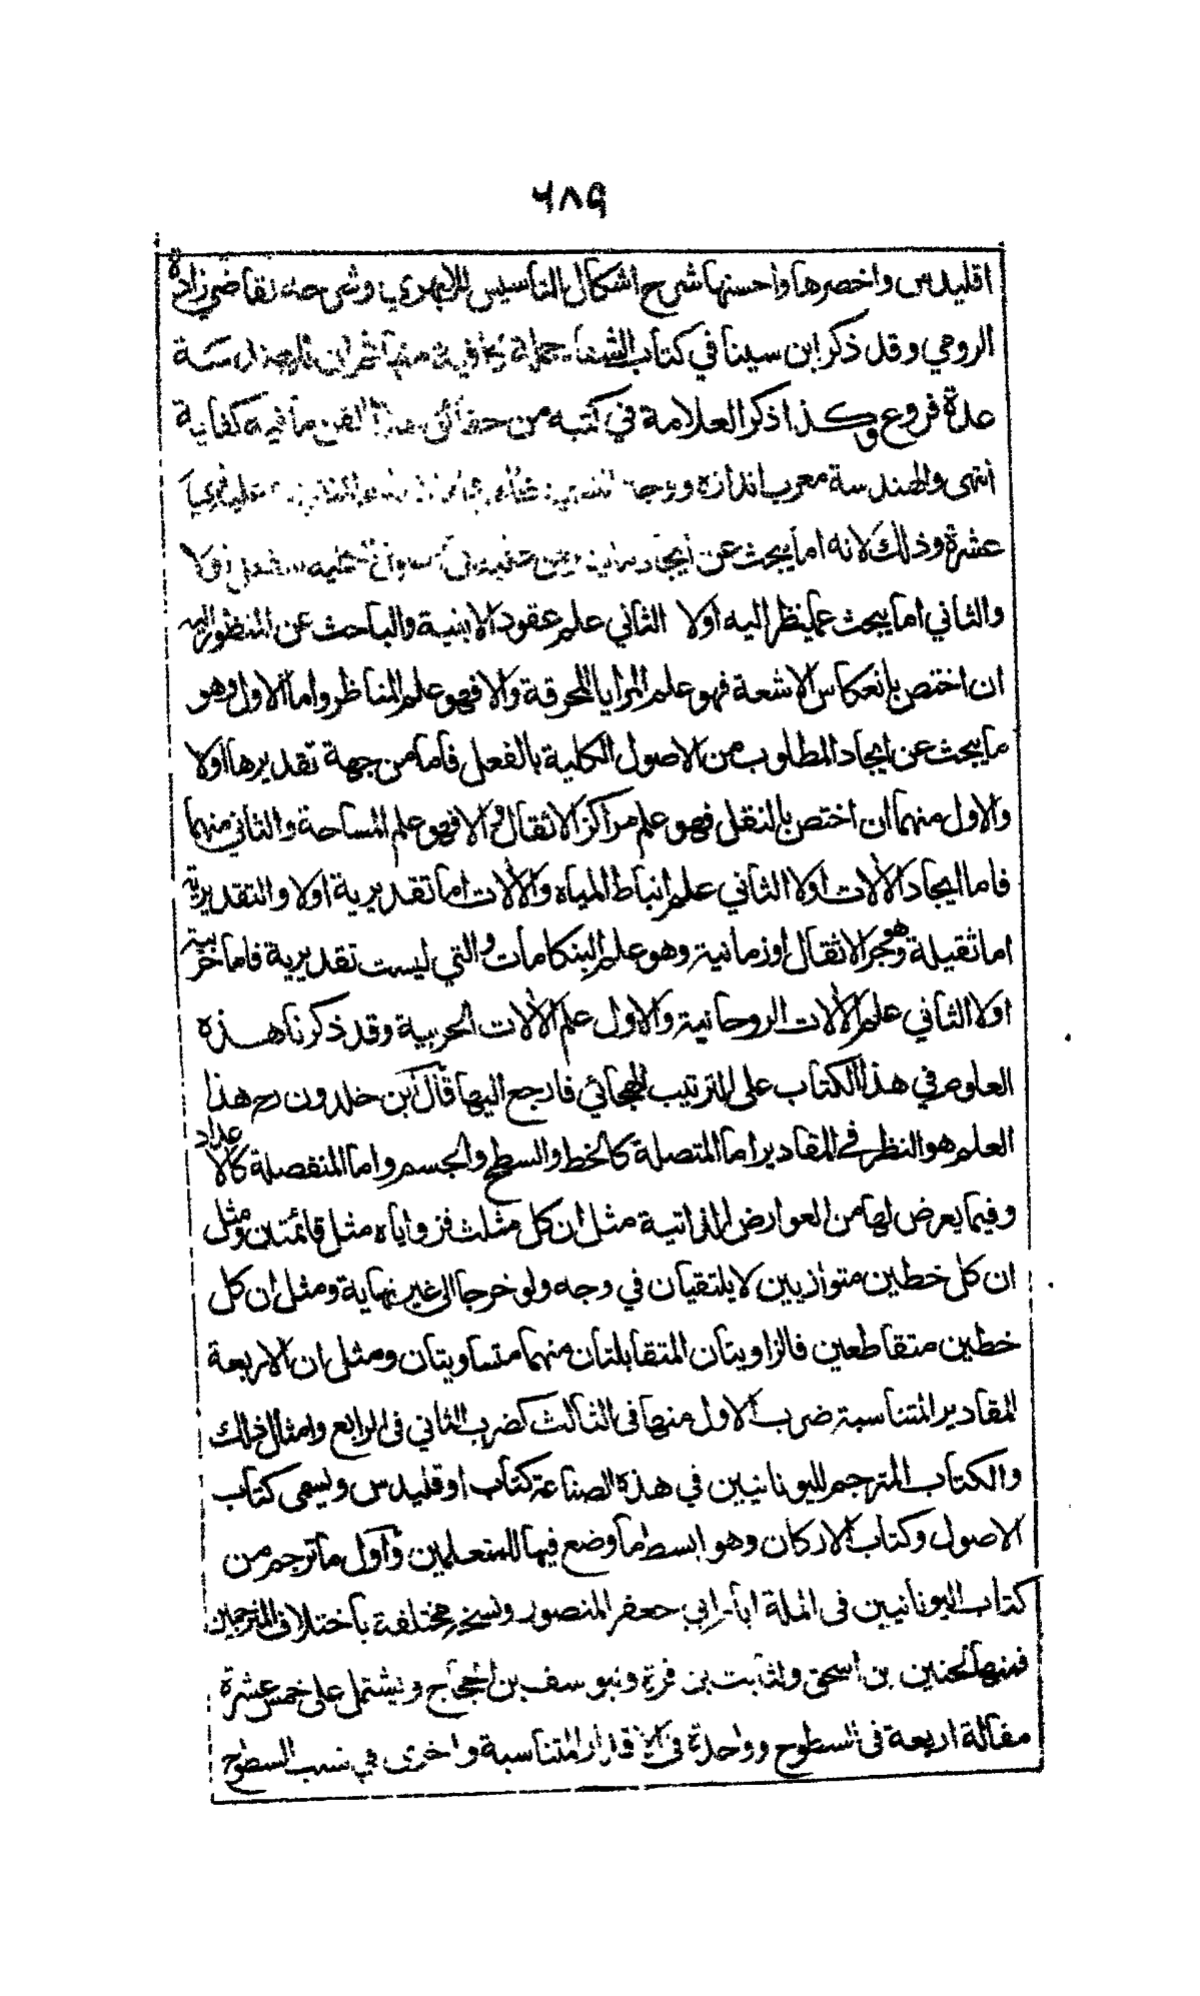 ٦٨٩
اقليدس واخصرها واحسنها شرح اشكال التاسيس للابهري وشرحه لقاضي زادة
الرومي وقد ذكر ابن سينا في كتاب الشفاء جملة كافية منها ثم ان للهندسة
عدة فروع وكذا ذكر العلامة في كتبه من حقائق هذا الفن ما فيه كفاية
انتهى والهندسة معرب اندازه ووجه
عشرة وذلك لانه اما يبحث عن ايجاد بالفعل اولا
والثاني اما يبحث عما ينظر اليه اولا الثاني علم عقود الابنية والباحث عن المنظور اليه
ان اختص بانعكاس الاشعة فهو علم المرايا المحرقة والا فهو علم المناظر واما الاول وهو
ما يبحث عن ايجاد المطلوب من الاصول الكلية بالفعل فاما من جهة تقديرها اولا
والاول منهما ان اختص بالنقل فهو علم مراكز الاثقال والا فهو علم المساحة والثاني منهما
فاما ايجاد الآلات اولا الثاني علم انباط المياه والآلات اما تقديرية اولا والتقديرية
اما ثقيلة وهو جر الاثقال او زمانية وهو علم البنكامات والتي ليست تقديرية فاما حربية
اولا الثاني علم الآلات الروحانية والاول علم الآلات الحربية وقد ذكرنا هذه
العلوم في هذا الكتاب على الترتيب الهجائي فارجع اليها قال ابن خلدون رح هذا
العلم هو النظر في المقادير اما المتصلة كالخط والسطح والجسم واما المنفصلة كالاعداد
وفيما يعرض لها من العوارض الذاتية مثل ان كل مثلث فزواياه مثل قائمتين ومثل
ان كل خطين متوازيين لا يلتقيان في وجه ولو خرجا الى غير نهاية ومثل ان كل
خطين متقاطعين فالزاويتان المتقابلتان منهما متساويتان ومثل ان الاربعة
المقادير المتناسبة ضرب الاول منها في الثالث كضرب الثاني في الرابع وامثال ذلك
والكتاب المترجم لليونانيين في هذه الصناعة كتاب اوقليدس ويسمى كتاب
الاصول وكتاب الاركان وهو ابسط ما وضع فيها للمتعلمين واول ما ترجم من
كتاب اليونانيين في الملة ايام ابي جعفر المنصور ونسخه مختلفة باختلاف المترجمين
فمنها لحنين بن اسحق ولثابت بن قرة وليوسف بن الحجاج ويشتمل على خمس عشرة
مقالة اربعة في السطوح وواحدة في الاقدار المتناسبة واخرى في نسب السطوح